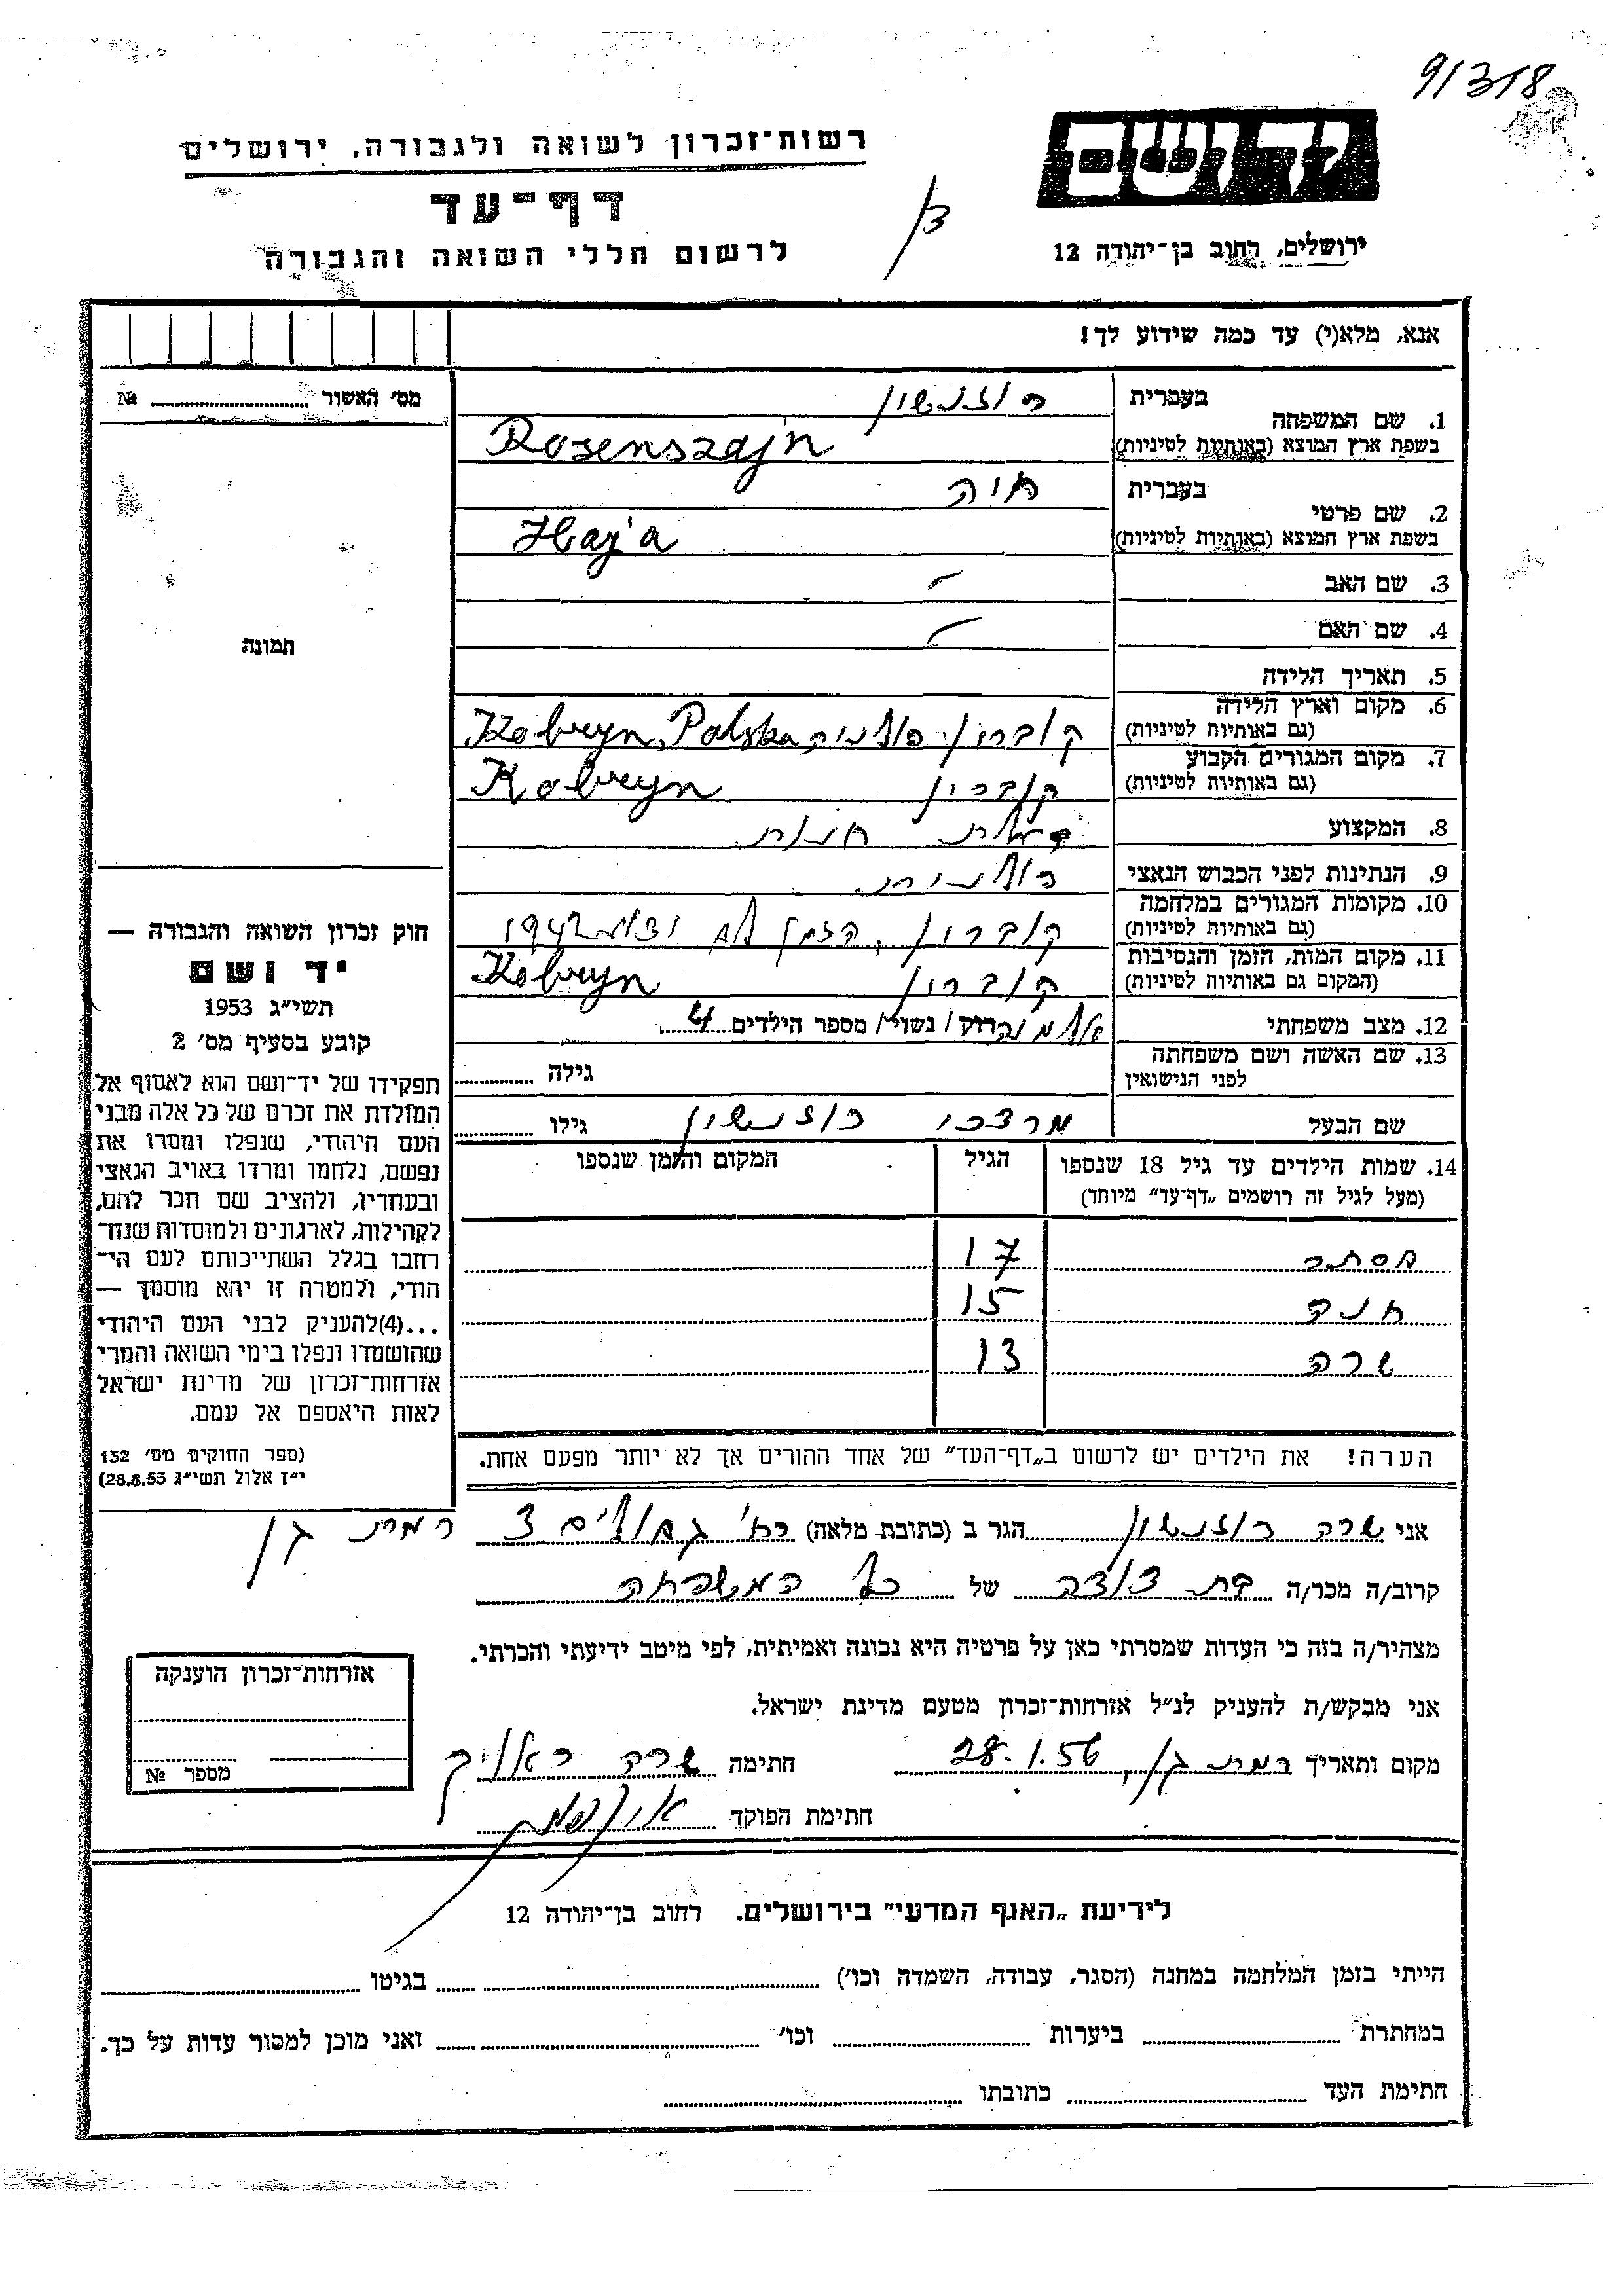 91318
רשות־זכרון לשואה ולגבורה, ירושלים
דף־עד
לרשום חללי השואה והגבורה
יד ושם
ירושלים, רחוב בן־יהודה 12
אנא, מלא(י) עד כמה שידוע לך!
מס׳ האשור № ........
תמונה
חוק זכרון השואה והגבורה —
יד ושם
תשי״ג 1953
קובע בסעיף מס׳ 2
תפקידו של יד־ושם הוא לאסוף אל
המולדת את זכרם של כל אלה מבני
העם היהודי, שנפלו ומסרו את
נפשם, נלחמו ומרדו באויב הנאצי
ובעוזריו, ולהציב שם וזכר להם,
לקהילות, לארגונים ולמוסדות שנח־
רחבו בגלל השתייכותם לעם הי־
הודי, ולמטרה זו יהא מוסמך —
...(4) להעניק לבני העם היהודי
שהושמדו ונפלו בימי השואה והמרי
אזרחות־זכרון של מדינת ישראל
לאות היאספם אל עמם.
(ספר החוקים מס׳ 132
י״ז אלול תשי״ג 28.8.53)
בעברית רוזנשין
1. שם המשפחה
בשפת ארץ המוצא (באותיות לטיניות) Rosenszajn
בעברית חיה
2. שם פרטי
בשפת ארץ המוצא (באותיות לטיניות) Haja
3. שם האב —
4. שם האם —
5. תאריך הלידה
6. מקום וארץ הלידה
(גם באותיות לטיניות) קוברין פולניה Kobryn, Polska
7. מקום המגורים הקבוע
(גם באותיות לטיניות) קוברין Kobryn
8. המקצוע בעלת חנות
9. הנתינות לפני הכבוש הנאצי פולנית
10. מקומות המגורים במלחמה
(גם באותיות לטיניות) קוברין, הזמן 1942
11. מקום המות, הזמן והנסיבות
(המקום גם באותיות לטיניות) קוברין Kobryn
12. מצב משפחתי אלמנה רווק / נשוי / מספר הילדים 4
13. שם האשה ושם משפחתה
לפני הנישואין גילה ........
שם הבעל מרדכי רוזנשין גילו ........
14. שמות הילדים עד גיל 18 שנספו הגיל המקום והזמן שנספו
(מעל לגיל זה רושמים „דף־עד״ מיוחד)
אסתר 17
חנה 15
שרה 13
הערה! את הילדים יש לרשום ב„דף־העד״ של אחד ההורים אך לא יותר מפעם אחת.
אני שרה רוזנשין הגר ב (כתובת מלאה) רח׳ גבולים 3 רמת גן
קרוב/ה מכר/ה בת דודה של כל המשפחה
מצהיר/ה בזה כי העדות שמסרתי כאן על פרטיה היא נכונה ואמיתית, לפי מיטב ידיעתי והכרתי.
אני מבקש/ת להעניק לנ״ל אזרחות־זכרון מטעם מדינת ישראל.
מקום ותאריך רמת גן, 28.1.56 חתימה שרה
חתימת הפוקד
אזרחות־זכרון הוענקה
מספר №
לידיעת „האגף המדעי״ בירושלים. רחוב בן־יהודה 12
הייתי בזמן המלחמה במחנה (הסגר, עבודה, השמדה וכו׳) ........ בגיטו ........
במחתרת ........ ביערות ........ וכו׳ ........ ואני מוכן למסור עדות על כך.
חתימת העד ........ כתובתו ........